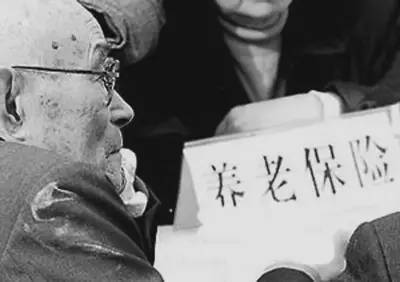 养老保险